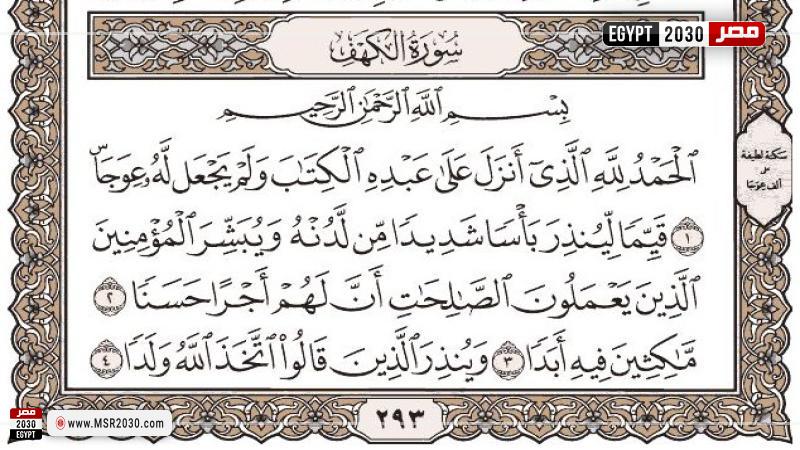 EGYPT 2030 مصر
سُورَةُ الكَهۡفِ
بِسۡمِ ٱللَّهِ ٱلرَّحۡمَٰنِ ٱلرَّحِيمِ
ٱلۡحَمۡدُ لِلَّهِ ٱلَّذِيٓ أَنزَلَ عَلَىٰ عَبۡدِهِ ٱلۡكِتَٰبَ وَلَمۡ يَجۡعَل لَّهُۥ عِوَجَاۜ
١ قَيِّمٗا لِّيُنذِرَ بَأۡسٗا شَدِيدٗا مِّن لَّدُنۡهُ وَيُبَشِّرَ ٱلۡمُؤۡمِنِينَ
ٱلَّذِينَ يَعۡمَلُونَ ٱلصَّٰلِحَٰتِ أَنَّ لَهُمۡ أَجۡرًا حَسَنٗا ٢
مَّٰكِثِينَ فِيهِ أَبَدٗا ٣ وَيُنذِرَ ٱلَّذِينَ قَالُواْ ٱتَّخَذَ ٱللَّهُ وَلَدٗا ٤
سكتة لطيفة
على
ألف عِوَجَا
٢٩٣
مصر
2030
EGYPT
www.MSR2030.com